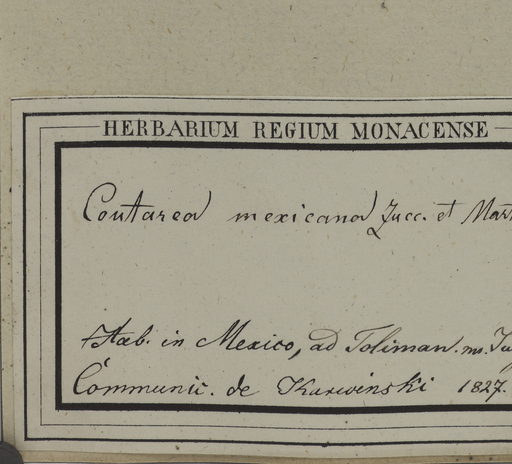 HERBARIUM REGIUM MONACENSE
Coutarea mexicana Zucc. et Mart
Hab. in Mexico, ad Toliman. ms.
Communic. de Karwinski 1827.